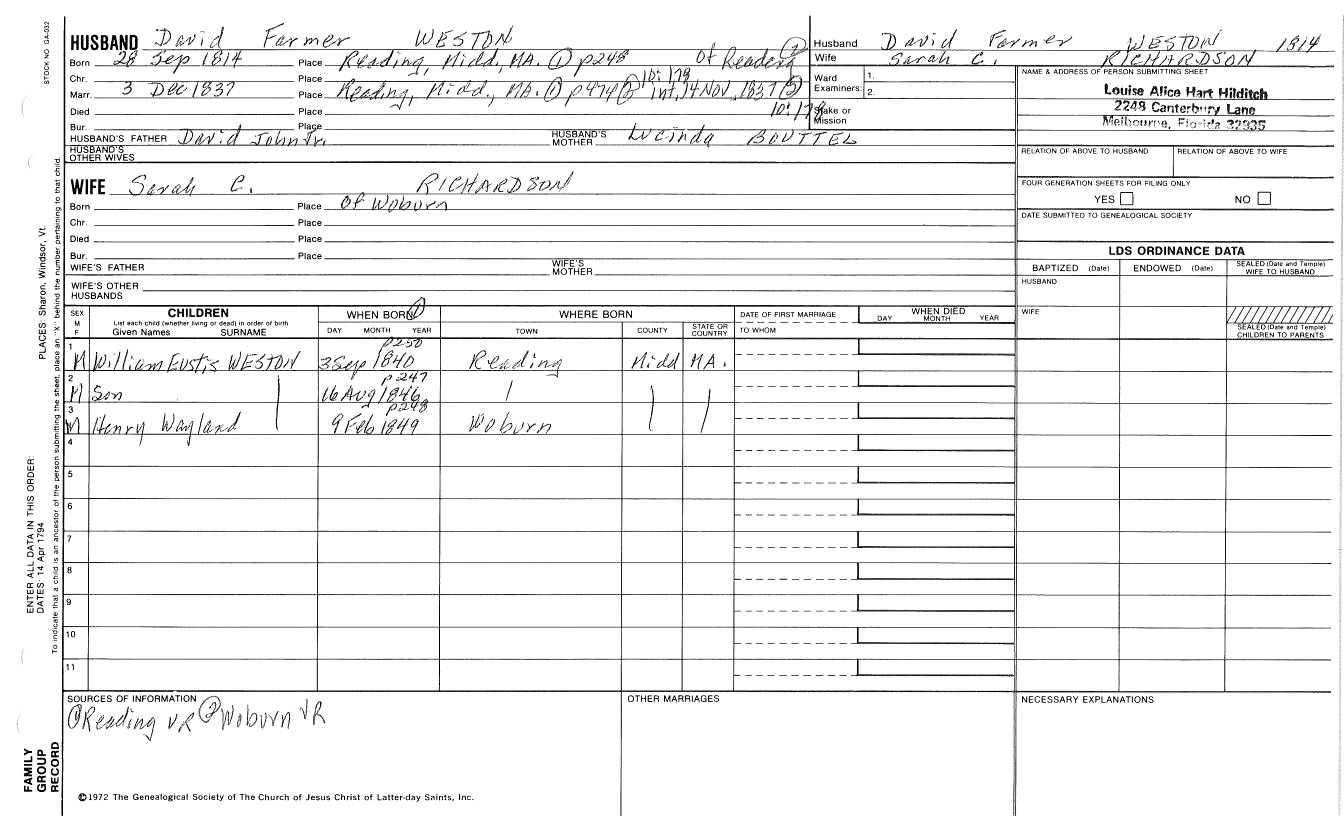 STOCK NO GA-032
HUSBAND David Farmer WESTON
Born 28 Sep 1814 Place Reading, Midd, MA. ① p248 of Reading ②
Chr. Place 10:178
Marr. 3 Dec 1837 Place Reading, Midd., MA. ① p474 ② int, 14 Nov, 1837 ②
Died Place 10:178
Bur. Place
HUSBAND'S FATHER David John Jr. HUSBAND'S MOTHER Lucinda BOUTTEL
HUSBAND'S OTHER WIVES
WIFE Sarah C. RICHARDSON
Born Place Of Woburn
Chr. Place
Died Place
Bur. Place
WIFE'S FATHER WIFE'S MOTHER
WIFE'S OTHER HUSBANDS
Husband David Farmer WESTON 1814
Wife Sarah C. RICHARDSON
Ward Examiners: 1. 2.
Stake or Mission
NAME & ADDRESS OF PERSON SUBMITTING SHEET
Louise Alice Hart Hilditch
2248 Canterbury Lane
Melbourne, Florida 32935
RELATION OF ABOVE TO HUSBAND RELATION OF ABOVE TO WIFE
FOUR GENERATION SHEETS FOR FILING ONLY
YES NO
DATE SUBMITTED TO GENEALOGICAL SOCIETY
LDS ORDINANCE DATA
BAPTIZED (Date) ENDOWED (Date) SEALED (Date and Temple) WIFE TO HUSBAND
HUSBAND
WIFE
SEALED (Date and Temple) CHILDREN TO PARENTS
SEX M F CHILDREN List each child (whether living or dead) in order of birth Given Names SURNAME
WHEN BORN ① DAY MONTH YEAR
WHERE BORN TOWN COUNTY STATE OR COUNTRY
DATE OF FIRST MARRIAGE TO WHOM
WHEN DIED DAY MONTH YEAR
p250
1 M William Eustis WESTON 3 Sep 1840 Reading Midd MA.
p247
2 M Son | 16 Aug 1846 | | |
p248
3 M Henry Wayland | 9 Feb 1849 Woburn | |
4
5
6
7
8
9
10
11
SOURCES OF INFORMATION
① Reading VR ② Woburn VR
OTHER MARRIAGES
NECESSARY EXPLANATIONS
©1972 The Genealogical Society of The Church of Jesus Christ of Latter-day Saints, Inc.
FAMILY GROUP RECORD
ENTER ALL DATA IN THIS ORDER:
DATES: 14 Apr 1794 PLACES: Sharon, Windsor, Vt.
To indicate that a child is an ancestor of the person submitting the sheet, place an "X" behind the number pertaining to that child.